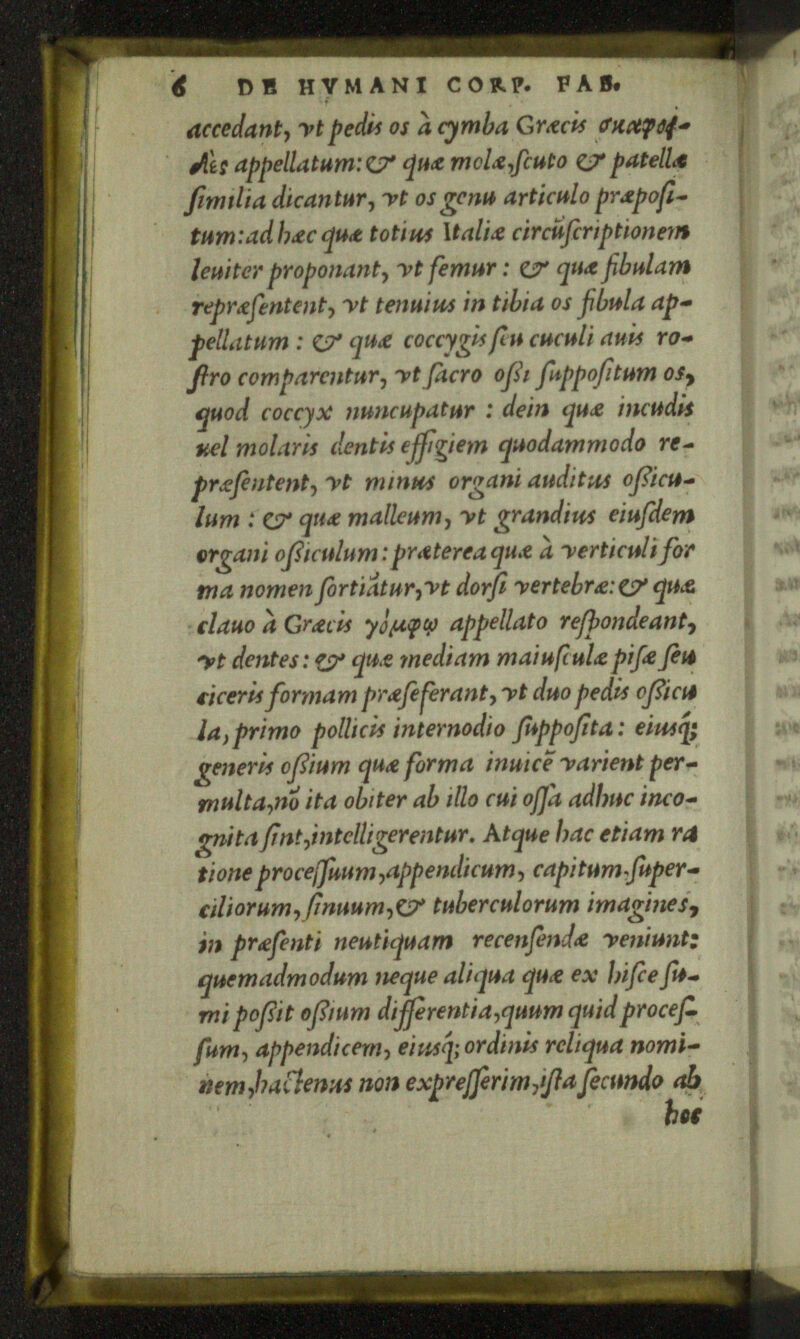 6 DE HVMANI CORP. FAB.
accedant, vt pedis os à cymba Græcis σκαφοἱ-
δὲς appellatum: & quæ molæ, ſcuto & patellæ
ſimilia dicantur, vt os genu articulo præpoſi-
tum: ad hæc quæ totius Italiæ circūſcriptionem
leuiter proponant, vt femur: & quæ fibulam
repræſentent, vt tenuius in tibia os fibula ap-
pellatum: & quæ coccygis ſeu cuculi auis ro-
ſtro comparentur, vt ſacro oßi ſuppoſitum os,
quod coccyx nuncupatur: dein quæ incudis
uel molaris dentis effigiem quodammodo re-
præſentent, vt minus organi auditus oßicu-
lum: & quæ malleum, vt grandius eiuſdem
organi oßiculum: præterea quæ à verticuli for
ma nomen ſortiātur, vt dorſi vertebræ: & quæ
clauo à Græcis γόμφῳ appellato reſpondeant,
vt dentes: & quæ mediam maiuſculæ piſæ ſeu
ciceris formam præſeferant, vt duo pedis oßicu
la, primo pollicis internodio ſuppoſita: eiusq́;
generis oßium quæ forma inuicē varient per-
multa, nō ita obiter ab illo cui oſſa adhuc inco-
gnita ſint, intelligerentur. Atque hac etiam ra
tione proceſſuum, appendicum, capitum, ſuper-
ciliorum, ſinuum, & tuberculorum imagines,
in præſenti neutiquam recenſendæ veniunt:
quemadmodum neque aliqua quæ ex hiſce ſu-
mi poßit oßium differentia, quum quid proceſ-
ſum, appendicem, eiusq́; ordinis reliqua nomi-
nem, hactenus non expreſſerim, iſta ſecundo ab
hoc